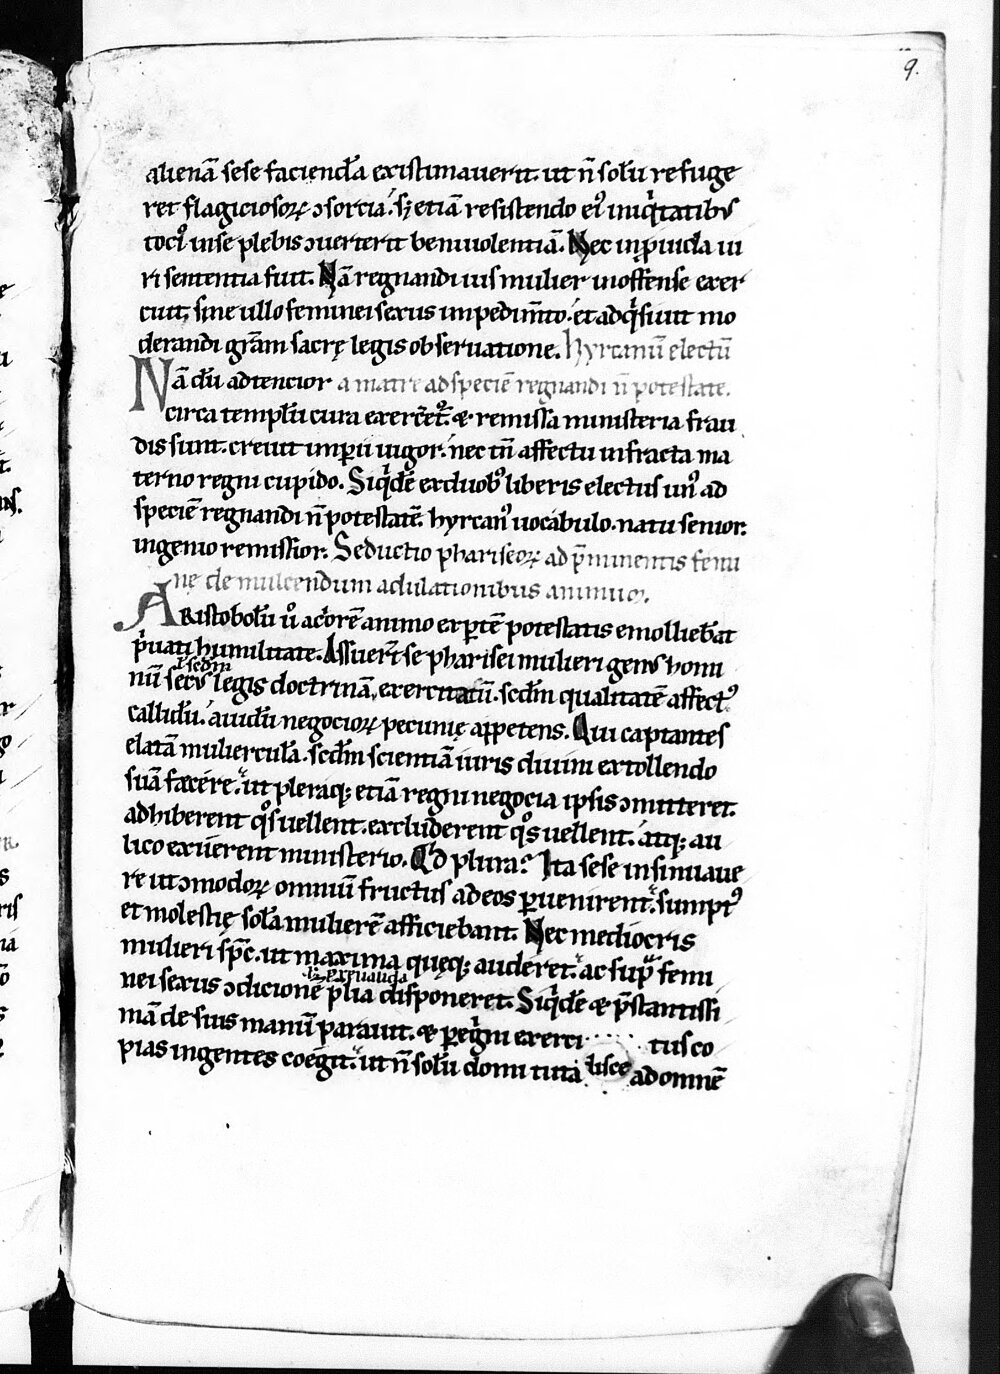 9.
alienā sese faciend̄a existimauerit. ut n̄ solū refuge
ret flagiciosoꝝ ɔsorciā. sꝫ etiā resistendo eiꝰ iniq̇tatibꝰ
tociꝰ in se plebis ɔuerterit beniuolentiā. Nec inꝓuida ui
ri sententia fuit. Nā regnandi ius mulier inoffense exer
cuit, sine ullo feminei sexus impedim̄to. et adq̇siuit mo
derandi gr̄am sacrę legis obseruatione. Hyrcanū electū
Nā dū adtencior a matre ad speciē regnandi n̄ potestate.
circa templū cura exerćet᷒. & remissa ministeria frau
dis sunt. creuit imꝑii uigor. nec tn̄ affectu infracta ma
terno regni cupido. Siq̇dē ex duobꝰ liberis electus unꝰ ad
speciē regnandi n̄ potestatē. hyrcanꝰ uocabulo. natu senior.
ingenio remissior. Seductio phariseoꝝ ad p̄minentis femi
nę demulcendum adulationibus animum.
Aristobolū u̇o acriorē animo exꝑtē potestatis emolliebat
ṗuati humilitate. Assuer̄t se pharisei mulieri genus homi
l̄ sedm̄
nū secus legis doctrinā, exercitatū. scd̄m qualitatē affectꝰ
callidū. auidū negocioꝝ pecunię appetens. Qui captantes
elatā mulierculā. scd̄m scientiā iuris diuini extollendo
suā facere. ut pleraqꝫ etiā regni negocia ipsis ɔmitteret.
adhiberent qͦs uellent. excluderent qͦs uellent. atqꝫ au
lico exuerent ministerio. Qͥd plura? Ita sese insinuaue
re ut ɔmodoꝝ omniū fructus ad eos ꝑuenirent. sumptꝰ
et molestię solā mulierē afficiebant. Nec mediocris
mulieri sp̄c. ut maxima quęqꝫ auderet. ac sup̄ femi
nei sexus ɔdicionē p̄lia disponeret. Siq̇dē & p̄stantissi
mā de suis manū parauit. & ꝑegͥni exerci tus co
pias ingentes coegit. ut n̄ solū domi tuta lisce ad omnē